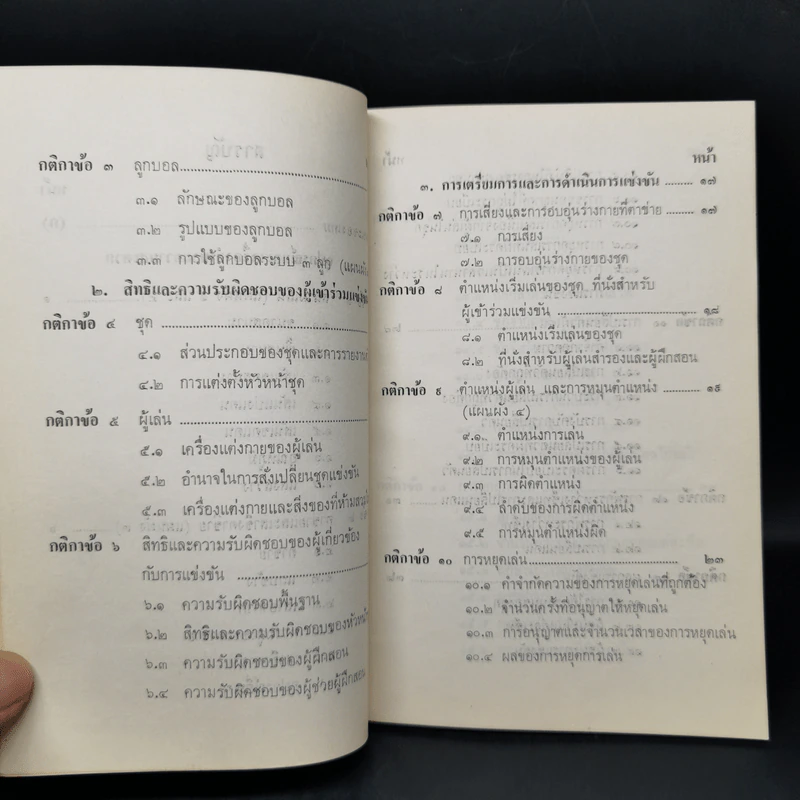 กติกาข้อ ๓ ลูกบอล
๓.๑ ลักษณะของลูกบอล
๓.๒ รูปแบบของลูกบอล
๓.๓ การใช้ลูกบอลระบบ ๓ ลูก (แผนผัง
๒. สิทธิและความรับผิดชอบของผู้เข้าร่วมแข่งขัน
กติกาข้อ ๔ ชุด
๔.๑ ส่วนประกอบของชุดและการรายงาน
๔.๒ การแต่งตั้งหัวหน้าชุด
กติกาข้อ ๕ ผู้เล่น
๕.๑ เครื่องแต่งกายของผู้เล่น
๕.๒ อำนาจในการสั่งเปลี่ยนชุดแข่งขัน
๕.๓ เครื่องแต่งกายและสิ่งของที่ห้ามสวม
กติกาข้อ ๖ สิทธิและความรับผิดชอบของผู้เกี่ยวข้อง
กับการแข่งขัน
๖.๑ ความรับผิดชอบพื้นฐาน
๖.๒ สิทธิและความรับผิดชอบของหัวหน้า
๖.๓ ความรับผิดชอบของผู้ฝึกสอน
๖.๔ ความรับผิดชอบของผู้ช่วยผู้ฝึกสอน
หน้า
๓. การเตรียมการและการดำเนินการแข่งขัน ........ ๑๗
กติกาข้อ ๗ การเสี่ยงและการอบอุ่นร่างกายที่ตาข่าย ........ ๑๗
๗.๑ การเสี่ยง
๗.๒ การอบอุ่นร่างกายของชุด
กติกาข้อ ๘ ตำแหน่งเริ่มเล่นของชุด ที่นั่งสำหรับ
ผู้เข้าร่วมแข่งขัน ........ ๑๘
๘.๑ ตำแหน่งเริ่มเล่นของชุด
๘.๒ ที่นั่งสำหรับผู้เล่นสำรองและผู้ฝึกสอน
กติกาข้อ ๙ ตำแหน่งผู้เล่น และการหมุนตำแหน่ง ........ ๑๙
(แผนผัง ๔)
๙.๑ ตำแหน่งการเล่น
๙.๒ การหมุนตำแหน่งของผู้เล่น
๙.๓ การผิดตำแหน่ง
๙.๔ ลำดับของการผิดตำแหน่ง
๙.๕ การหมุนตำแหน่งผิด
กติกาข้อ ๑๐ การหยุดเล่น ........ ๒๓
๑๐.๑ คำจำกัดความของการหยุดเล่นที่ถูกต้อง
๑๐.๒ จำนวนครั้งที่อนุญาตให้หยุดเล่น
๑๐.๓ การอนุญาตและจำนวนเวลาของการหยุดเล่น
๑๐.๔ ผลของการหยุดการเล่น